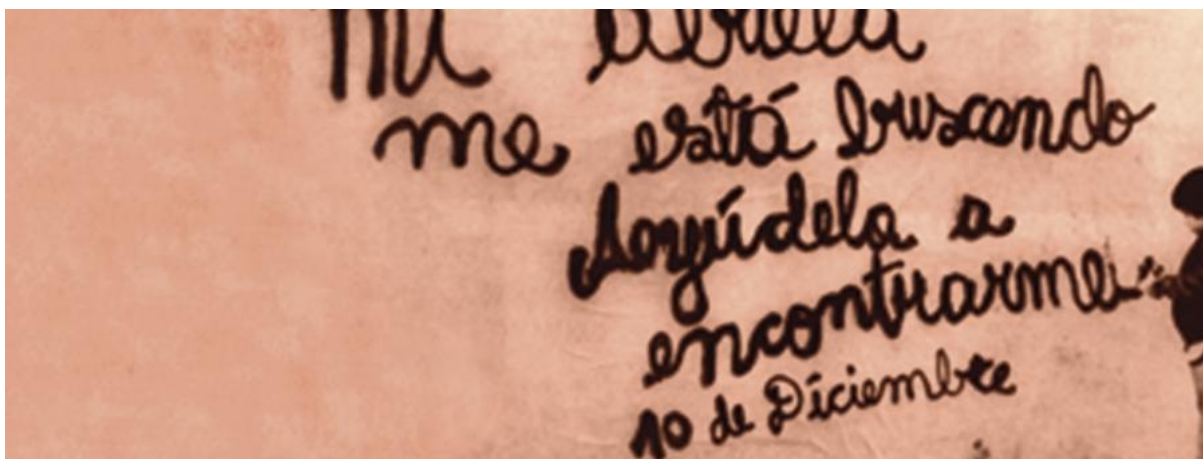 Mi abuela
me está buscando
Ayúdela a
encontrarme
10 de Diciembre